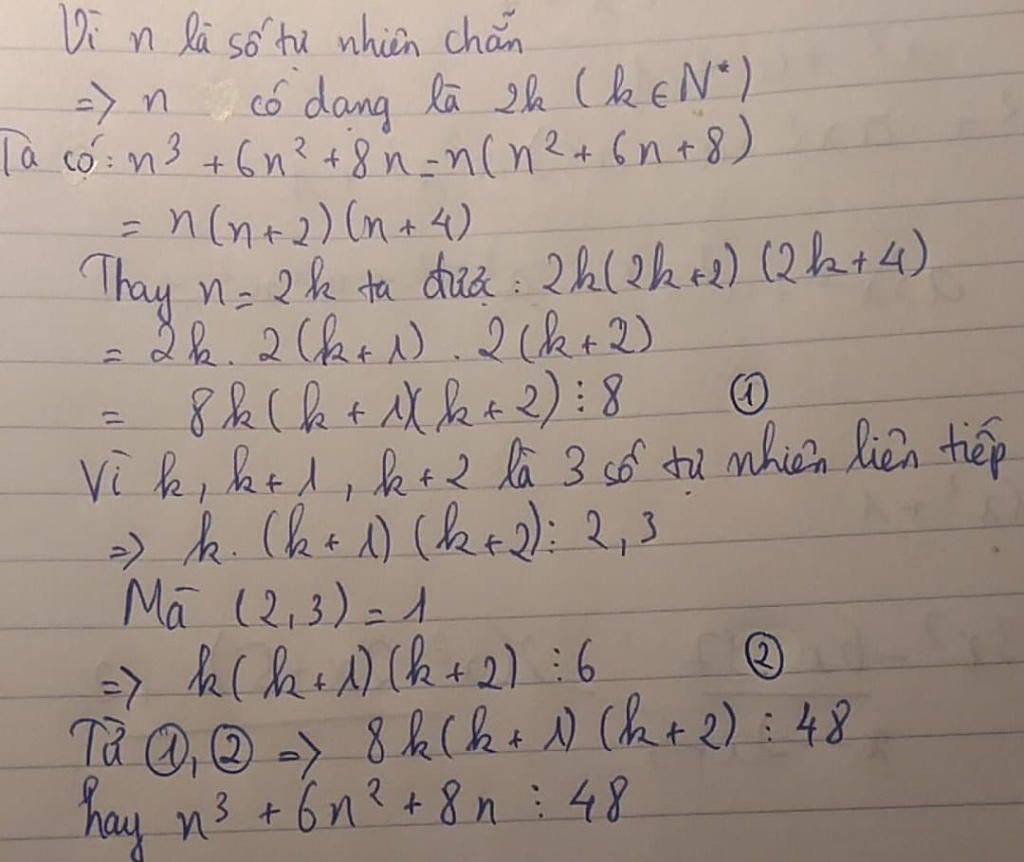 Vì n là số tự nhiên chẵn
=> n có dạng là 2k (k ∈ N*)
Ta có: n³ + 6n² + 8n = n(n² + 6n + 8)
= n(n+2)(n+4)
Thay n = 2k ta được: 2k(2k+2)(2k+4)
= 2k. 2(k+1). 2(k+2)
= 8k(k+1)(k+2) ⋮ 8 ①
Vì k, k+1, k+2 là 3 số tự nhiên liên tiếp
=> k. (k+1)(k+2) ⋮ 2,3
Mà (2,3) = 1
=> k(k+1)(k+2) ⋮ 6 ②
Từ ①, ② => 8k(k+1)(k+2) ⋮ 48
hay n³ + 6n² + 8n ⋮ 48